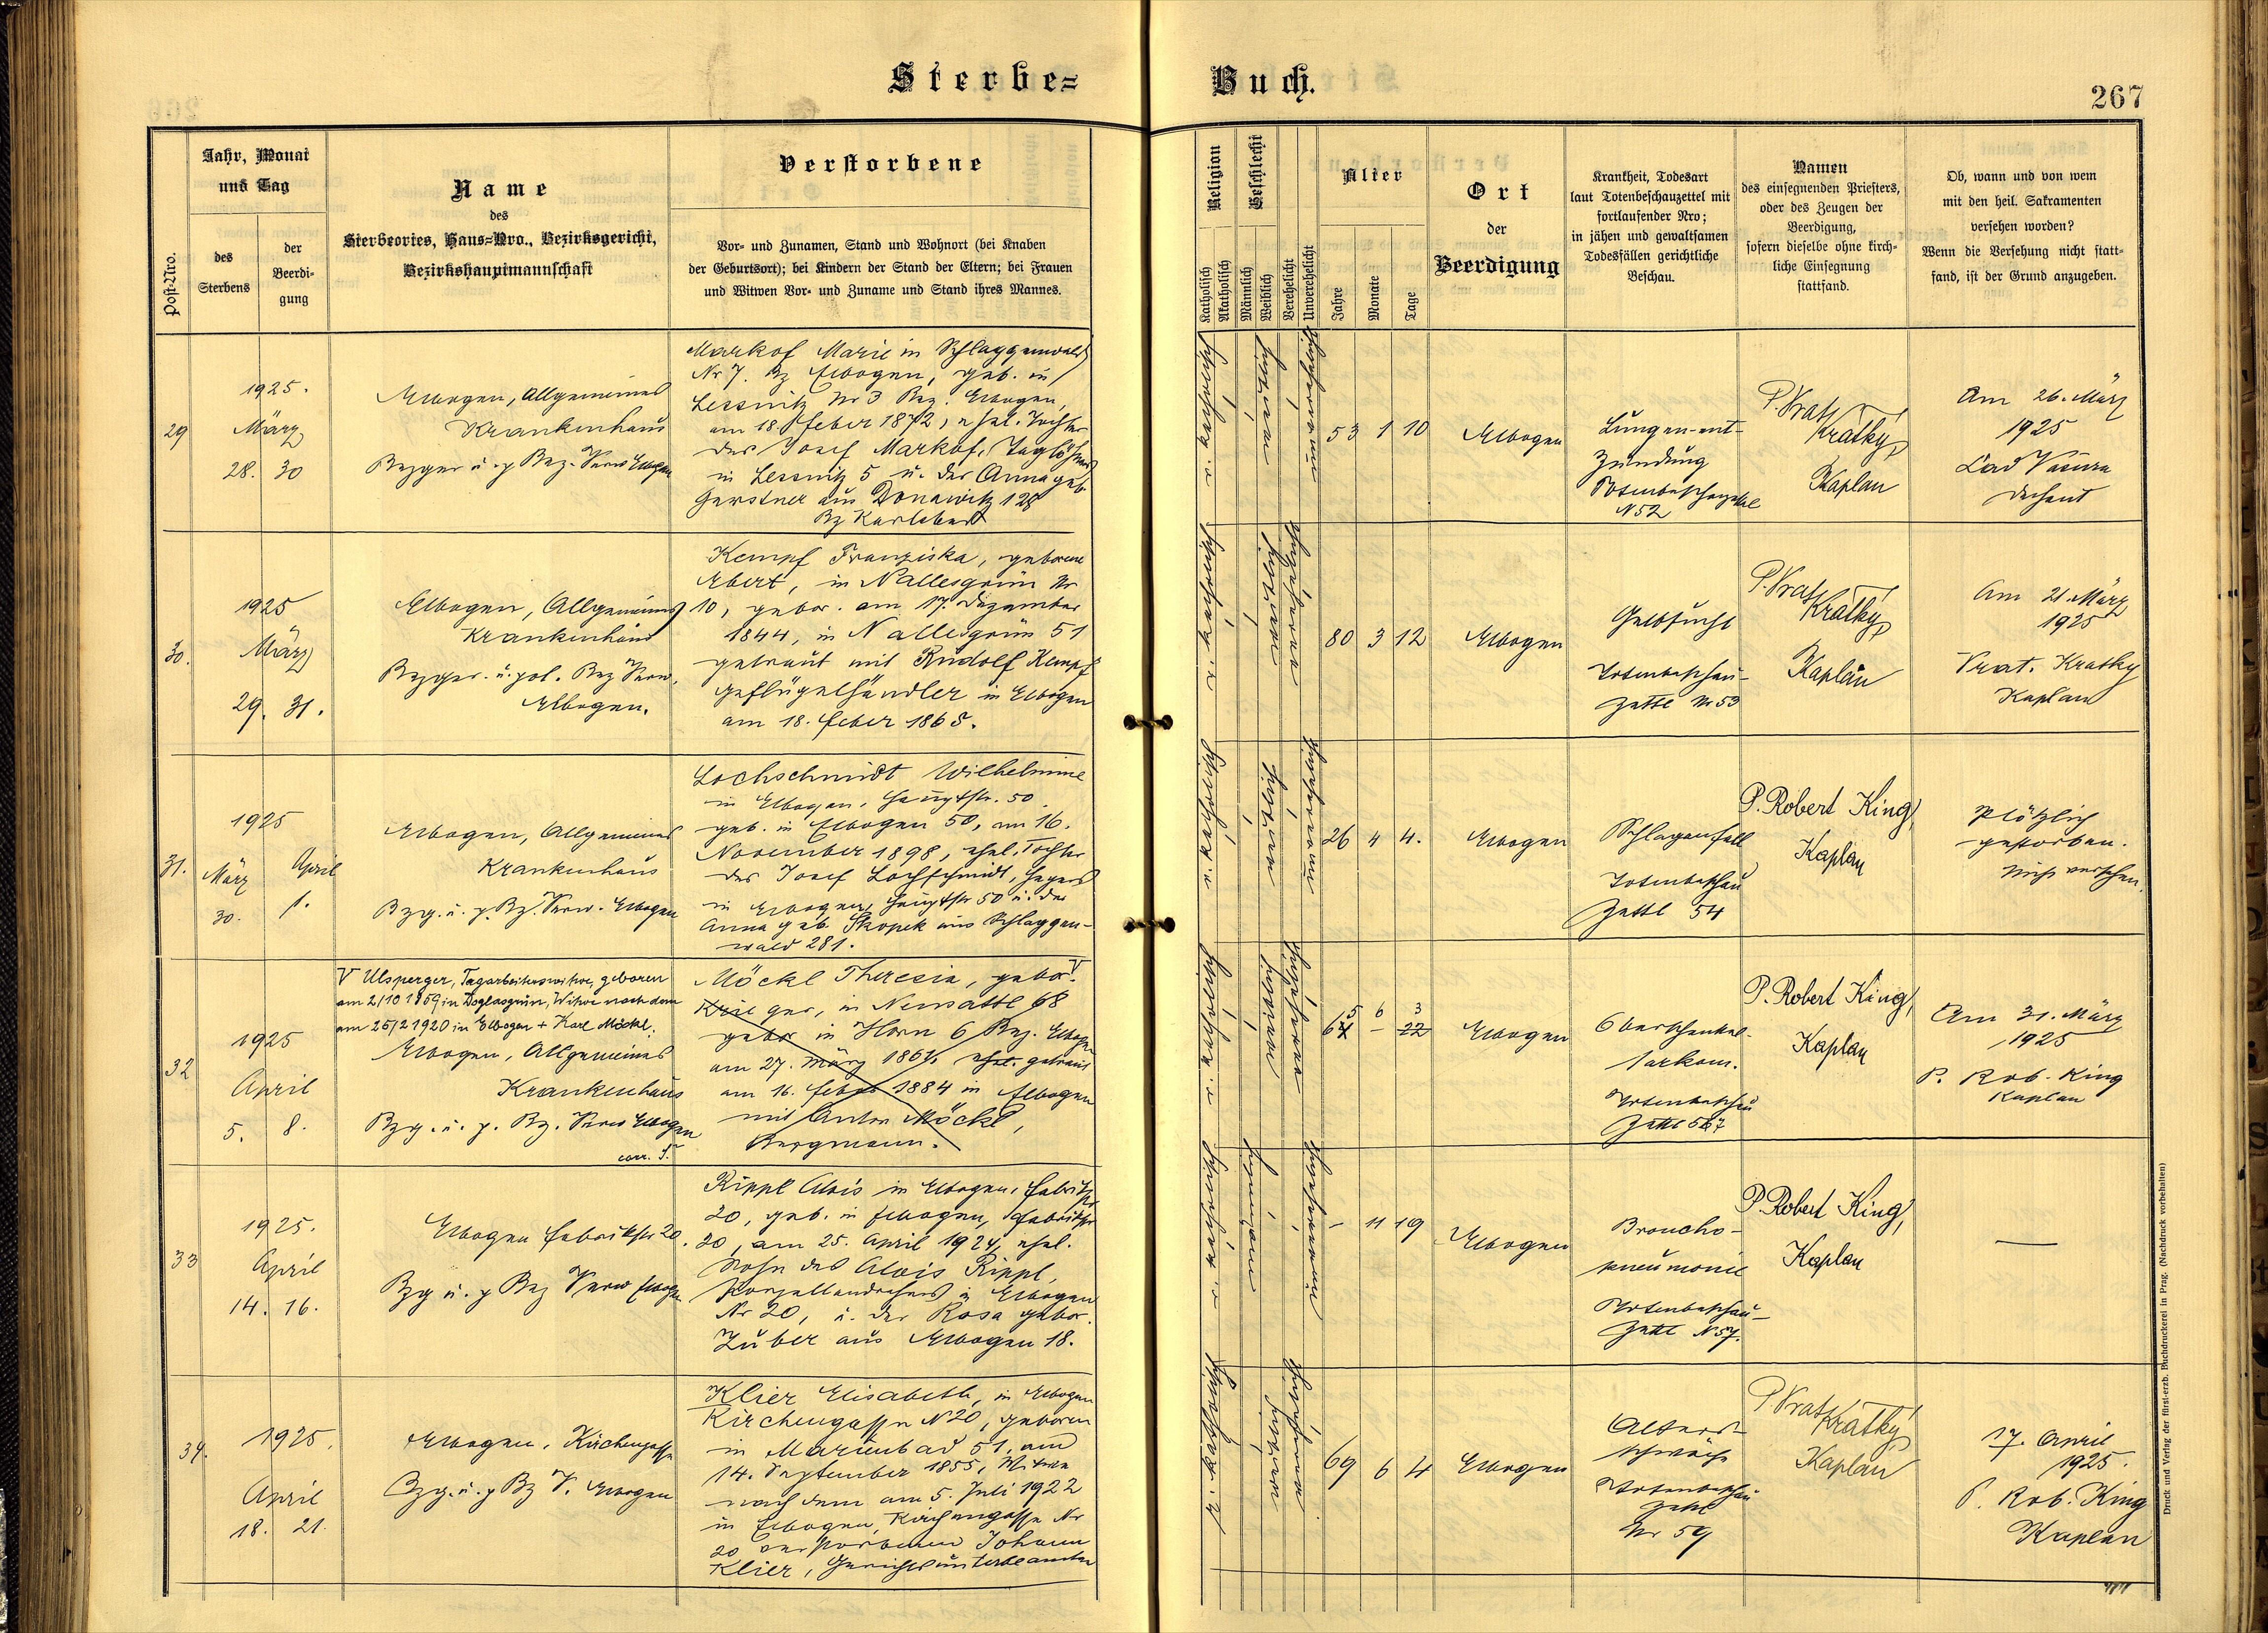 Sterbe=
Buch.
267
Post=Nro.
Jahr, Monat
und Tag
des
Sterbens
der
Beerdi=
gung
Name
des
Sterbeortes, Haus=Nro., Bezirksgericht,
Bezirkshauptmannschaft
Verstorbene
Vor= und Zunamen, Stand und Wohnort (bei Knaben
der Geburtsort); bei Kindern der Stand der Eltern; bei Frauen
und Witwen Vor= und Zuname und Stand ihres Mannes.
Religion
Katholisch
Akatholisch
Geschlecht
Männlich
Weiblich
Verehelicht
Unverehelicht
Alter
Jahre
Monate
Tage
Ort
der
Beerdigung
Krankheit, Todesart
laut Totenbeschauzettel mit
fortlaufender Nro;
in jähen und gewaltsamen
Todesfällen gerichtliche
Beschau.
Namen
des einsegnenden Priesters,
oder des Zeugen der
Beerdigung,
sofern dieselbe ohne kirch=
liche Einsegnung
stattfand.
Ob, wann und von wem
mit den heil. Sakramenten
versehen worden?
Wenn die Versehung nicht statt=
fand, ist der Grund anzugeben.
29
1925.
März
28. 30
Elbogen, Allgemeines
Krankenhaus
Bezger u. p Bez. Verw Elbogen
Markof Marie in Schlaggenwald
Nr 7. Bz Elbogen, geb. in
Lessnitz Nr 3 Bez. Elbogen,
am 18. Feber 1872, ehel. Tochter
des Josef Markof, Taglöhner
in Lessnitz 5 u. der Anna geb.
Gerstner aus Donawitz 128
Bz Karlsbad
53 1 10
Elbogen
Lungen-ent-
zündung
Totenbeschauzettel
N 52
P. Vrat
Kratky
Kaplan
Am 26. März
1925
Lad Vacura
Dechant
30.
1925
März
29. 31.
Elbogen, Allgemeines
Krankenhaus
Bezger. u. pol. Bez Verw.
Elbogen.
Kempf Franziska, geborene
Ebert, in Nallesgrün Nr
10, gebor. am 17. Dezember
1844, in Nallesgrün 51
getraut mit Rudolf Kempf
Geflügelhändler in Elbogen
am 18. Feber 1868.
80 3 12
Elbogen
Gelbsucht
Totenbeschau-
zettl Nr 53
P. Vrat
Kratky
Kaplan
Am 21. März
1925
Vrat. Kratky
Kaplan
31.
1925
März April
30. 1.
Elbogen, Allgemeines
Krankenhaus
Bzg. u. p. Bz. Verw. Elbogen
Lochschmidt Wilhelmine
in Elbogen, Hauptstr. 50.
geb. in Elbogen 50, am 16.
November 1898, ehel. Tochter
des Josef Lochschmidt, Hegers
in Elbogen, Hauptstr 50 u. der
Anna geb. Skopek aus Schlaggen-
wald 281.
26 4 4.
Elbogen
Schlaganfall
Totenbeschau
Zettl 54
P. Robert King,
Kaplan
Plötzlich
gestorben.
Nicht versehen.
32
1925
April
5. 8.
V Ulsperger, Tagarbeiterswitwe, geboren
am 2/10 1859 in Doglasgrün, Witwe nach dem
am 25/2 1920 in Elbogen + Karl Möckl.
Elbogen, Allgemeines
Krankenhaus
Bzg. u. p. Bz. Verw Elbogen
corr. S.
Möckl Theresia, gebor. V
Krieger, in Neusattl 68
gebor in Horn 6 Bez. Elbogen
am 27. März 1861, ehel. getraut
am 16. Feber 1884 in Elbogen
mit Anton Möckl,
Bergmann.
5 6 3
64 - 22
Elbogen
Oberschenkel-
sarkom.
Totenbeschau
Zettl 567
P. Robert King,
Kaplan
Am 31. März
1925
P. Rob. King
Kaplan
33
1925.
April
14. 16.
Elbogen Fabrikstr 20.
Bzg u. p Bez Verw Elbogen
Rippl Alois in Elbogen, Fabrikstr
20, geb. in Elbogen, Fabrikstr
20, am 25. April 1924, ehel.
Sohn des Alois Rippl,
Porzellandrehers in Elbogen
Nr 20, u. der Rosa gebor.
Zuber aus Elbogen 18.
- 11 19
Elbogen
Broncho-
pneumonie
Totenbeschau-
Zettl N 57.
P. Robert King,
Kaplan
—
34.
1925.
April
18. 21.
Elbogen, Kirchengasse
Bzg. u. p Bz V. Elbogen
Klier Elisabeth, in Elbogen
Kirchengasse N 20, geboren
in Marienbad 51, am
14. September 1855, Witwe
nach dem am 5. Juli 1922
in Elbogen, Kirchengasse Nr
20 verstorbenen Johann
Klier, Gerichtsunterbeamten
69 6 4
Elbogen
Alters-
schwäche
Totenbeschau
Zettl
Nr 59
P Vrat
Kratky
Kaplan
17. April
1925.
P. Rob. King
Kaplan
Druck und Verlag der fürst-erzb. Buchdruckerei in Prag. (Nachdruck vorbehalten)